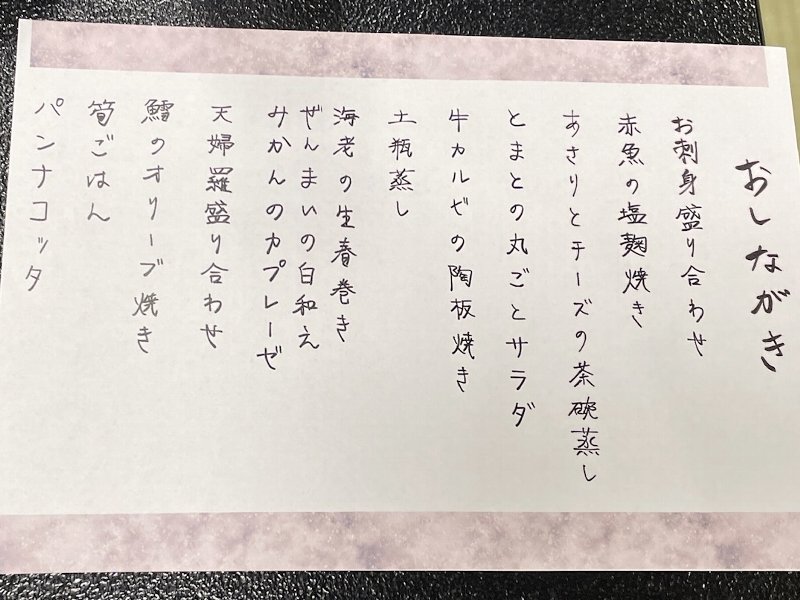 おしながき
お刺身盛り合わせ
赤魚の塩麹焼き
あさりとチーズの茶碗蒸し
とまとの丸ごとサラダ
牛カルビの陶板焼き
土瓶蒸し
海老の生春巻き
ぜんまいの白和え
みかんのカプレーゼ
天婦羅盛り合わせ
鱈のオリーブ焼き
筍ごはん
パンナコッタ